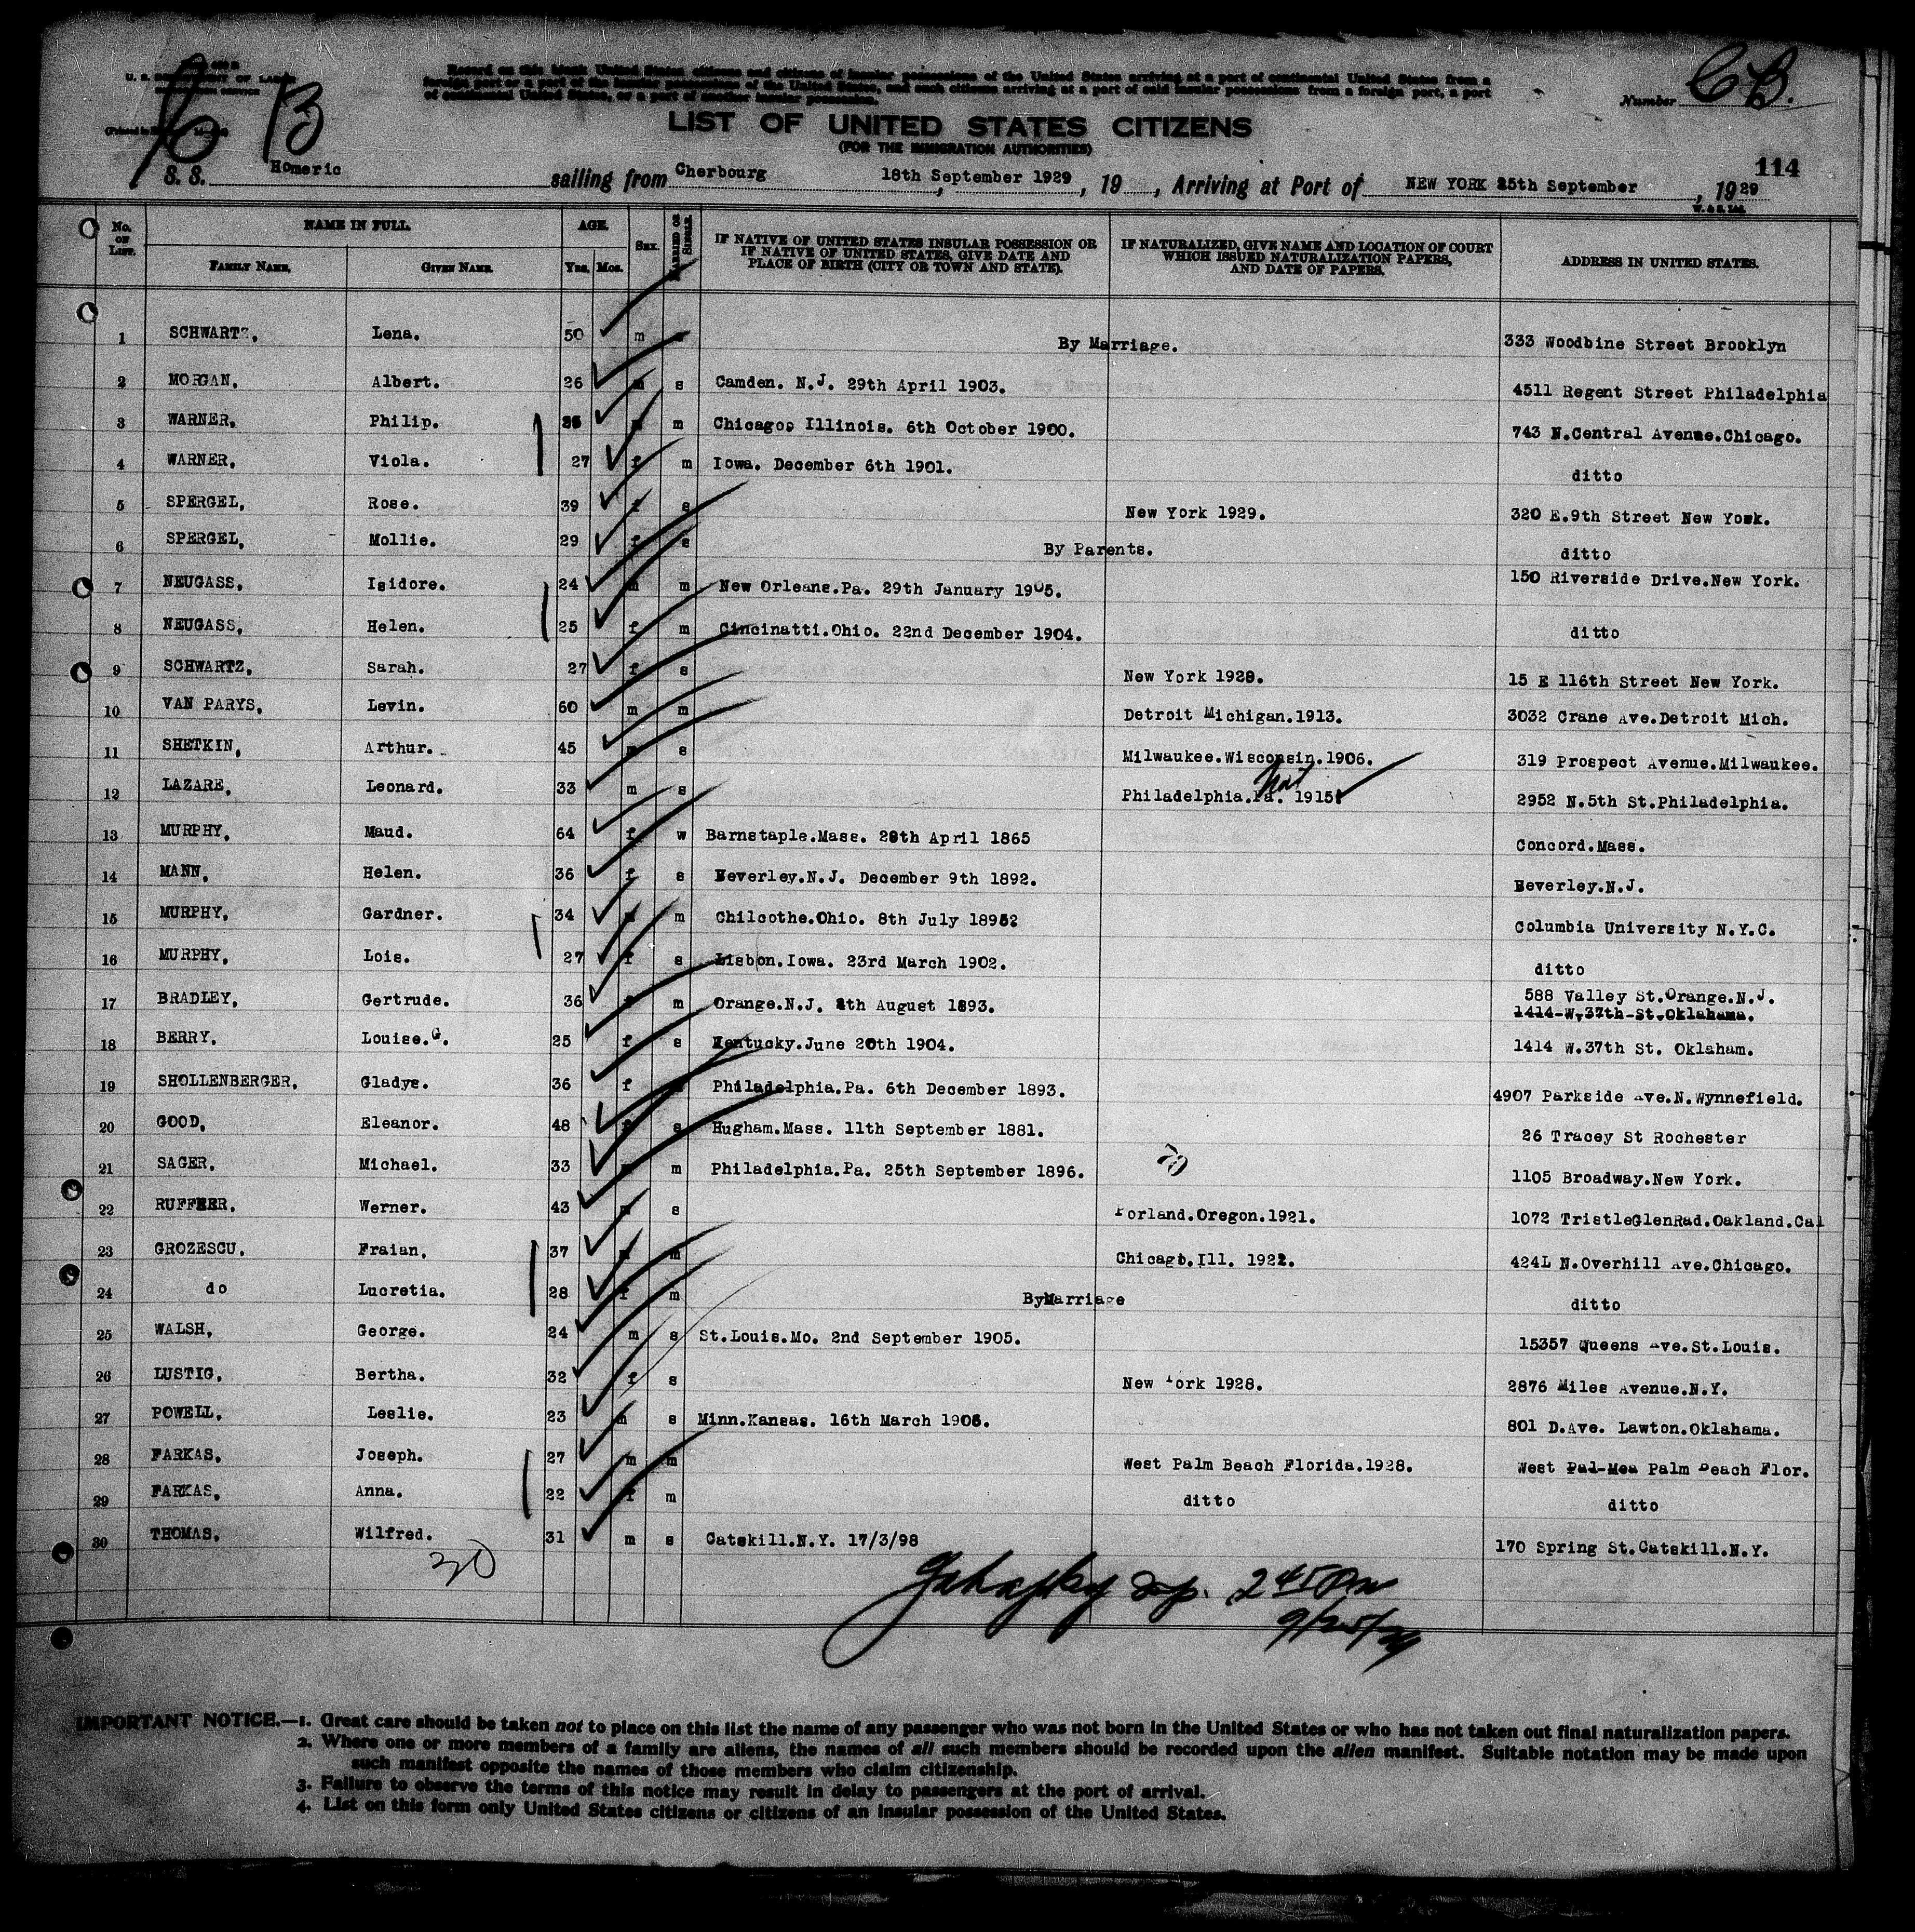 U. S. DEPARTMENT OF LABOR
B
Record on this blank United States citizens and citizens of insular possessions of the United States arriving at a port of continental United States from a
foreign port or a port of the insular possessions of the United States, and such citizens arriving at a port of said insular possessions from a foreign port, a port
of continental United States, or a port of another insular possession.
Number CB.
LIST OF UNITED STATES CITIZENS
(FOR THE IMMIGRATION AUTHORITIES)
114
S. S. Homeric sailing from Cherbourg 18th September 1929, 19 , Arriving at Port of NEW YORK 25th September, 1929
W. & S. Ltd.
No. ON LIST. NAME IN FULL. FAMILY NAME. GIVEN NAME. AGE. Yrs. Mos. SEX. MARRIED OR SINGLE. IF NATIVE OF UNITED STATES INSULAR POSSESSION OR IF NATIVE OF UNITED STATES, GIVE DATE AND PLACE OF BIRTH (CITY OR TOWN AND STATE). IF NATURALIZED, GIVE NAME AND LOCATION OF COURT WHICH ISSUED NATURALIZATION PAPERS, AND DATE OF PAPERS. ADDRESS IN UNITED STATES.
1 SCHWARTZ, Lena. 50 m By Marriage. 333 Woodbine Street Brooklyn
2 MORGAN, Albert. 26 m s Camden. N.J. 29th April 1903. 4511 Regent Street Philadelphia
3 WARNER, Philip. m Chicago, Illinois. 6th October 1900. 743 N.Central Avenue.Chicago.
4 WARNER, Viola. 27 f m Iowa. December 6th 1901. ditto
5 SPERGEL, Rose. 39 f s New York 1929. 320 E.9th Street New York.
6 SPERGEL, Mollie. 29 f s By Parents. ditto
7 NEUGASS, Isidore. 24 m m New Orleans.Pa. 29th January 1905. 150 Riverside Drive.New York.
8 NEUGASS, Helen. 25 f m Cincinatti.Ohio. 22nd December 1904. ditto
9 SCHWARTZ, Sarah. 27 f s New York 1928. 15 E 116th Street New York.
10 VAN PARYS, Levin. 60 m m Detroit Michigan.1913. 3032 Crane Ave.Detroit Mich.
11 SHETKIN, Arthur. 45 m s Milwaukee.Wisconsin.1906. 319 Prospect Avenue.Milwaukee.
12 LAZARE, Leonard. 33 m s Philadelphia.Pa. 1915. 2952 N.5th St.Philadelphia.
13 MURPHY, Maud. 64 f w Barnstaple.Mass. 28th April 1865 Concord.Mass.
14 MANN, Helen. 36 f s Beverley.N.J. December 9th 1892. Beverley.N.J.
15 MURPHY, Gardner. 34 m m Chilcothe.Ohio. 8th July 18952 Columbia University N.Y.C.
16 MURPHY, Lois. 27 f s Lisbon.Iowa. 23rd March 1902. ditto
17 BRADLEY, Gertrude. 36 f m Orange.N.J. 8th August 1893. 588 Valley St.Orange.N.J.
1414-W,37th-St.Oklahama.
18 BERRY, Louise.G. 25 f s Kentucky.June 20th 1904. 1414 W.37th St. Oklaham.
19 SHOLLENBERGER, Gladys. 36 f Philadelphia.Pa. 6th December 1893. 4907 Parkside Ave.N.Wynnefield.
20 GOOD, Eleanor. 48 f s Hugham.Mass. 11th September 1881. 26 Tracey St Rochester
21 SAGER, Michael. 33 m m Philadelphia.Pa. 25th September 1896. 1105 Broadway.New York.
22 RUFFNER, Werner. 43 m s Porland.Oregon.1921. 1072 TristleGlenRad.Oakland.Cal
23 GROZESCU, Fraian, 37 m m Chicago.Ill. 1922. 424L N.Overhill Ave.Chicago.
24 do Lucretia. 28 f m ByMarriage ditto
25 WALSH, George. 24 m s St.Louis.Mo. 2nd September 1905. 15357 Queens Ave.St.Louis.
26 LUSTIG, Bertha. 32 f s New York 1928. 2876 Miles Avenue.N.Y.
27 POWELL, Leslie. 23 m s Minn.Kansas. 16th March 1906. 801 D.Ave. Lawton.Oklahoma.
28 FARKAS, Joseph. 27 m m West Palm Beach Florida.1928. West Pal-Mea Palm Beach Flor.
29 FARKAS, Anna. 22 f m ditto ditto
30 THOMAS, Wilfred. 31 m s Catskill.N.Y. 17/3/98 170 Spring St.Catskill.N.Y.
30
2 45 Pm
9/25/29
IMPORTANT NOTICE.—1. Great care should be taken not to place on this list the name of any passenger who was not born in the United States or who has not taken out final naturalization papers.
2. Where one or more members of a family are aliens, the names of all such members should be recorded upon the alien manifest. Suitable notation may be made upon
such manifest opposite the names of those members who claim citizenship.
3. Failure to observe the terms of this notice may result in delay to passengers at the port of arrival.
4. List on this form only United States citizens or citizens of an insular possession of the United States.